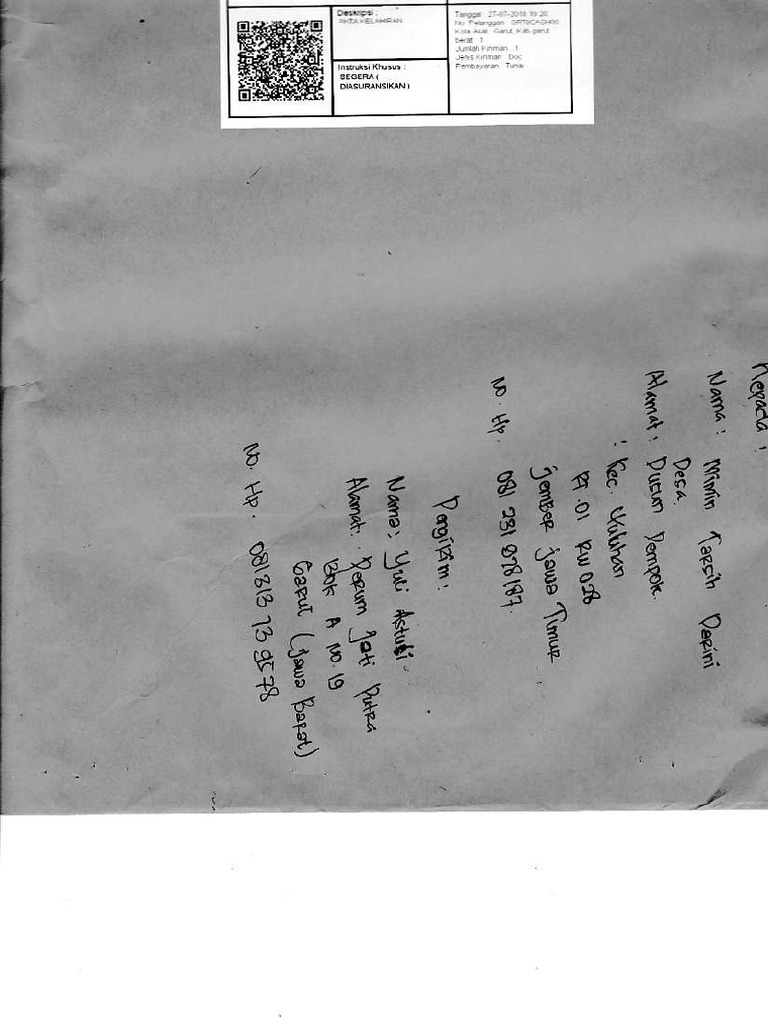 Deskripsi :
AKTA KELAHIRAN
Instruksi Khusus :
SEGERA (
DIASURANSIKAN )
Tanggal : 27-07-2018 19:20
No. Pelanggan :
Kota Asal : Garut, Kab.garut
berat : 1
Jumlah Kiriman : 1
Jenis Kiriman : Doc
Pembayaran : Tunai
Kepada :
Nama : Mimin Tarsih Darini
Desa
Alamat : Dusun Pompok.
: Kec. Wuluhan
RT.01 RW 028
Jember Jawa Timur
No. Hp. 081 231 878 187.
Pengirim :
Nama : Yuli Astuti
Alamat : Perum Jati Putra
Blok A No. 19
Garut (Jawa Barat)
No. Hp. 081 313 73 9578